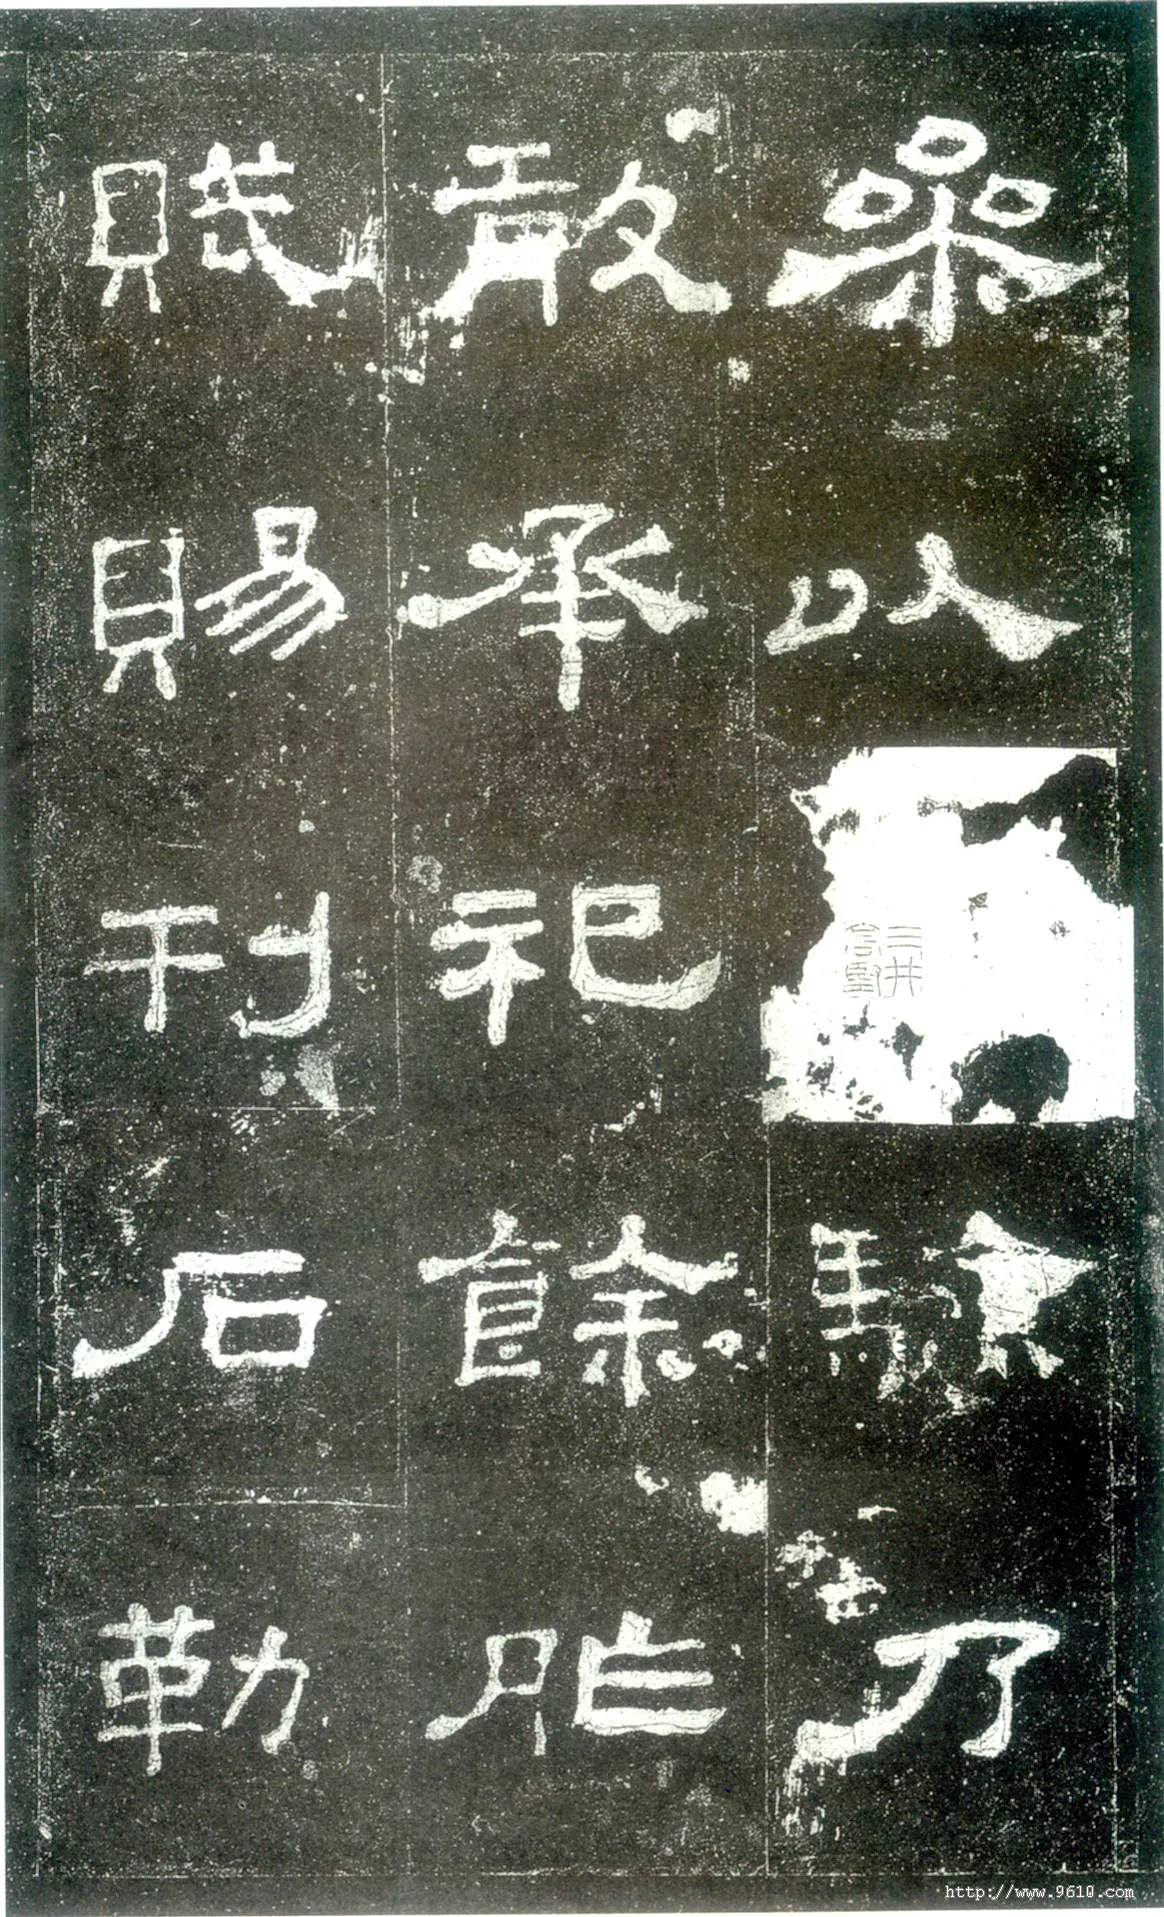 參以驗乃
敢承祀餘胙
賦賜刊石勒
三井
高堅
http://www.9610.com